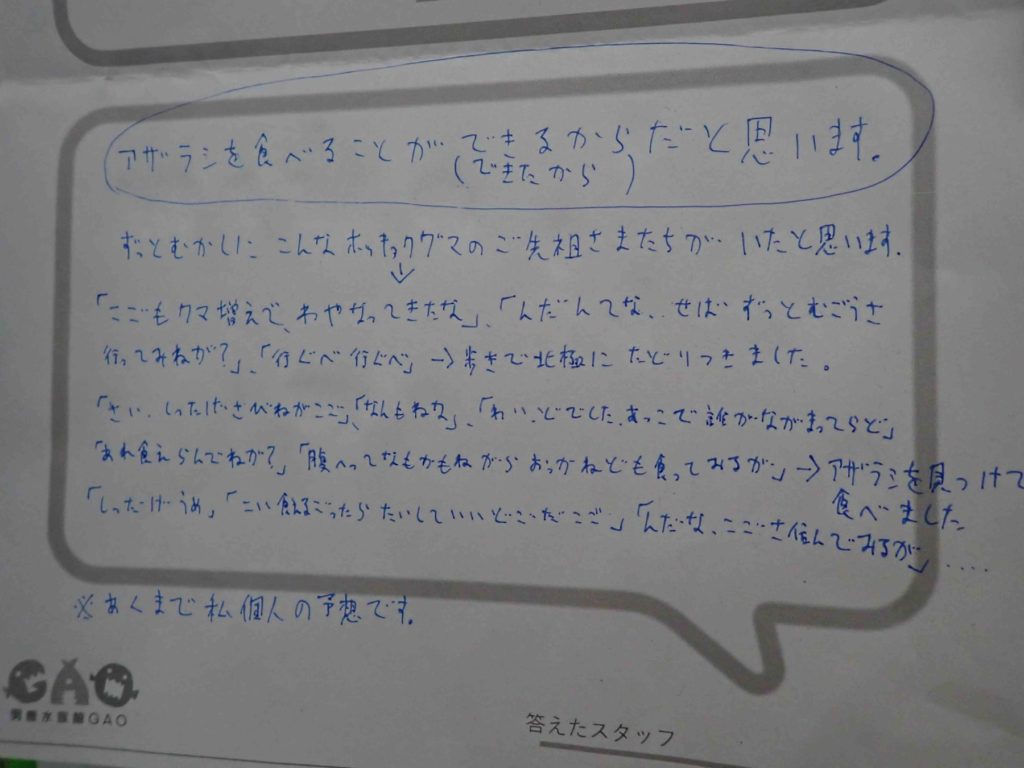 アザラシを食べることができるからだと思います。
(できたから)
ずっとむかしに こんなホッキョクグマのご先祖さまたちが いたと思います。
↓
「ここもクマ増えで、わやなってきたな」、「んだんてな、せば ずっとむごうさ
行ってみねが?」、「行ぐべ 行ぐべ」→歩きで北極に たどりつきました。
「さい、しったげさびねがここ」、「なんもねな」、「わい、どでした、あっこで誰がながまってらど」
「あれ食えらんでねが?」「腹へってなもかもねがら おっかねども食ってみるが」→アザラシを見つけて
食べました
「しったげうめ」「こい食えるごったら たいしていいどこだここ」「んだな、ここさ住んでみるが」....
※あくまで私個人の予想です。
GAO
男鹿水族館GAO
答えたスタッフ